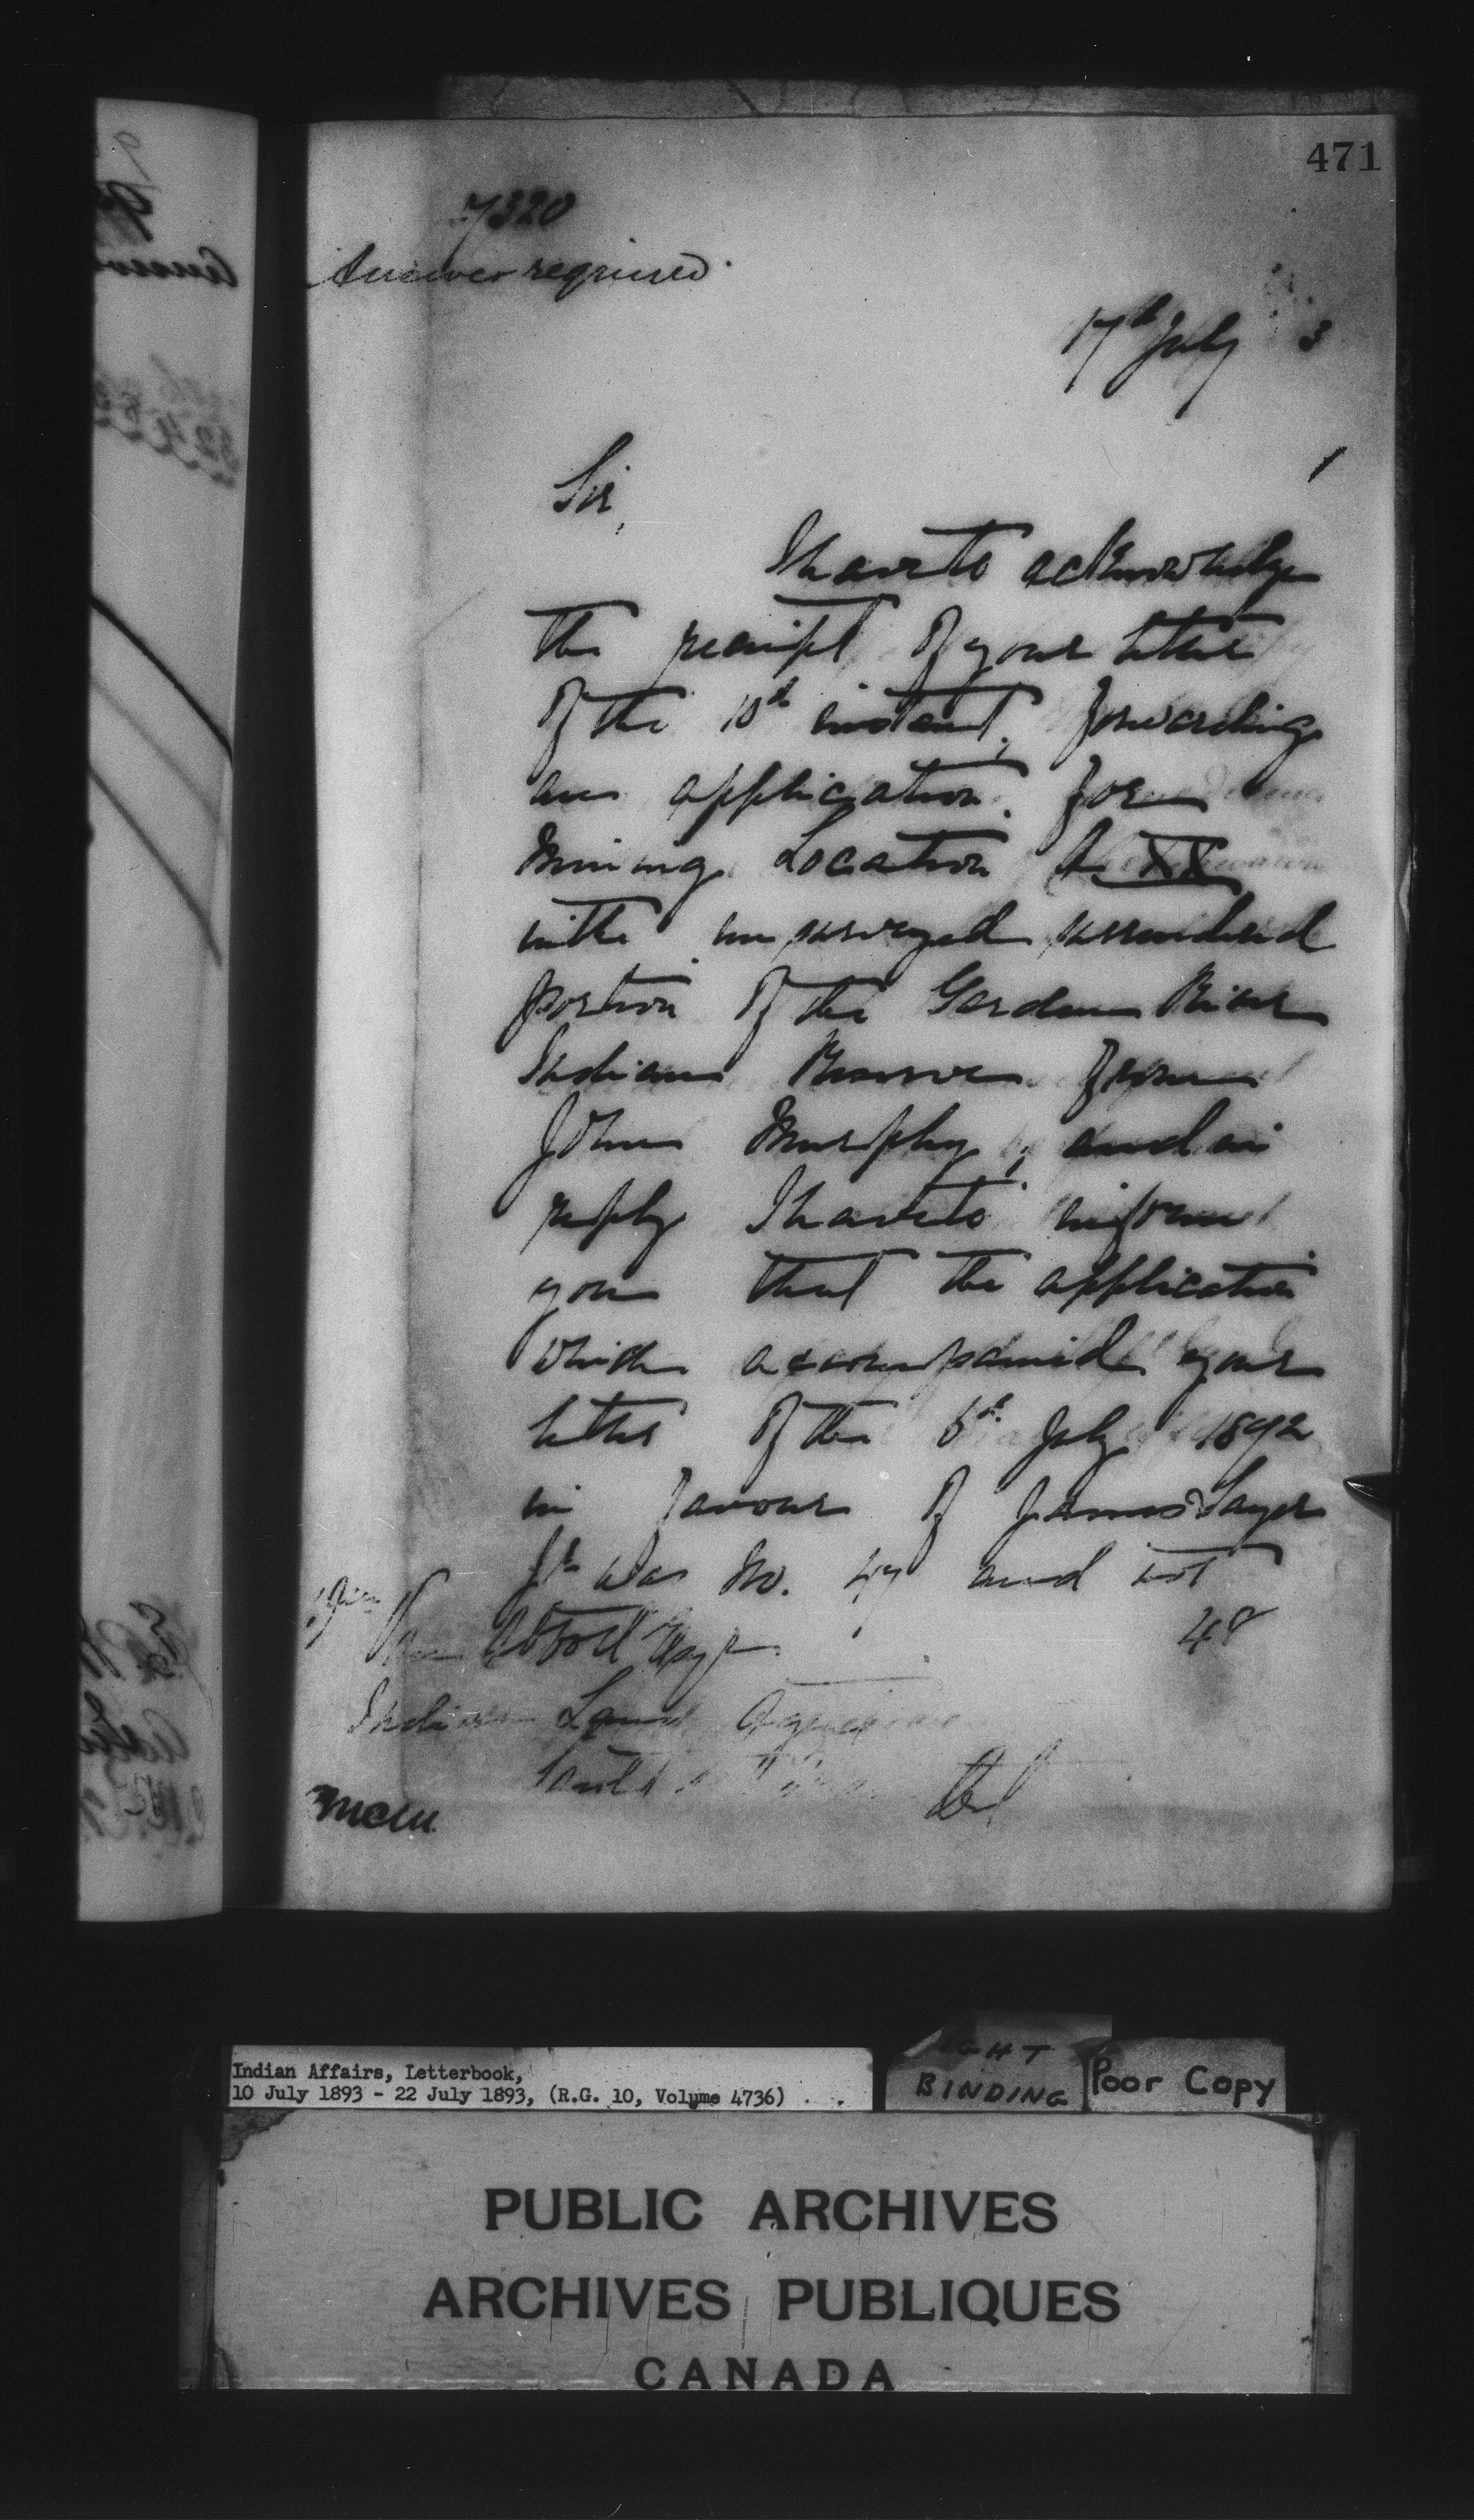 471
7320
Answer required.
17th July 3
Sir,
I have to acknowledge
the receipt of your letter
of the 10th instant, forwarding
an application for
Mining Location
in the unsurveyed surrendered
portion of the Garden River
Indian Reserve from
John Murphy, and in
reply I have to inform
you that the application
which accompanied your
letter of the 6th July 1892
in favour of James Sayer
was No. 47 and not
48
Wm Van Abbott Esq
Indian Land Agent
Sault
Ont
Indian Affairs, Letterbook,
10 July 1893 - 22 July 1893, (R.G. 10, Volume 4736)
BINDING
Poor Copy
PUBLIC ARCHIVES
ARCHIVES PUBLIQUES
CANADA